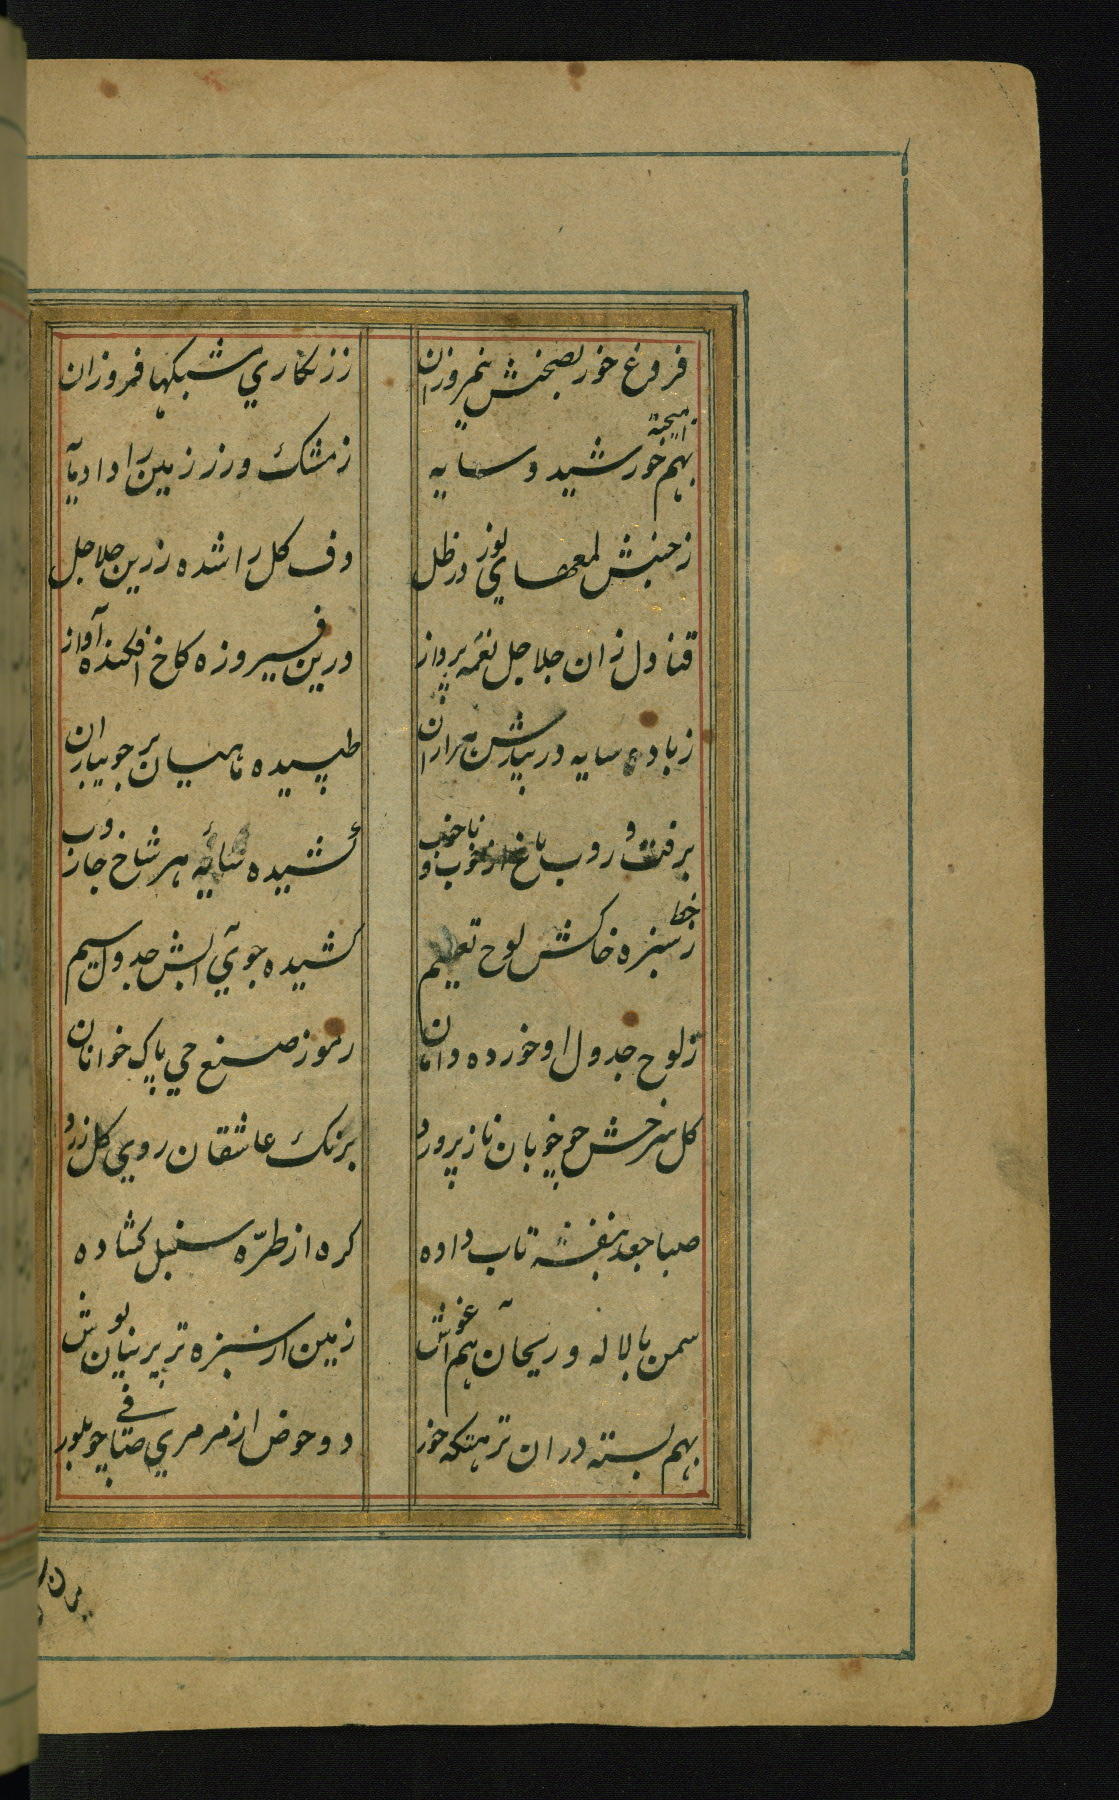 فروغ خور بصحنش نیمروزان
ززرکاری شبکها فروزان
بهم خورشید و سایه آمیخته
زمشک و زر زمین را داد مایه
زجنبش لمعهای نور در ظل
دف کل را شده زرین جلاجل
قنادل زان جلاجل نغمه پرداز
درین فیروزه کاخ افکنده آواز
زباد و سایه در بیدش هزاران
طپیده ماهیان بر جویباران
برفت و روب باغ از خوب و ناخوب
کشیده سائه هر شاخ جاروب
خط زسبزه خاکش لوح تعلیم
کشیده جوی آبش جدول سیم
زلوح جدول او خورده دانان
رموز صنع حی پاک خوانان
کل سرخش چو خوبان نازپرورد
برنک عاشقان روی کل زرد
صبا جعد بنفشه تاب داده
کره از طره سنبل کشاده
سمن با لاله و ریحان هم آغوش
زمین از سبزه تر پرنیان پوش
بهم بسته دران نزهتکه حور
دو حوض از مرمری صافی چو بلور